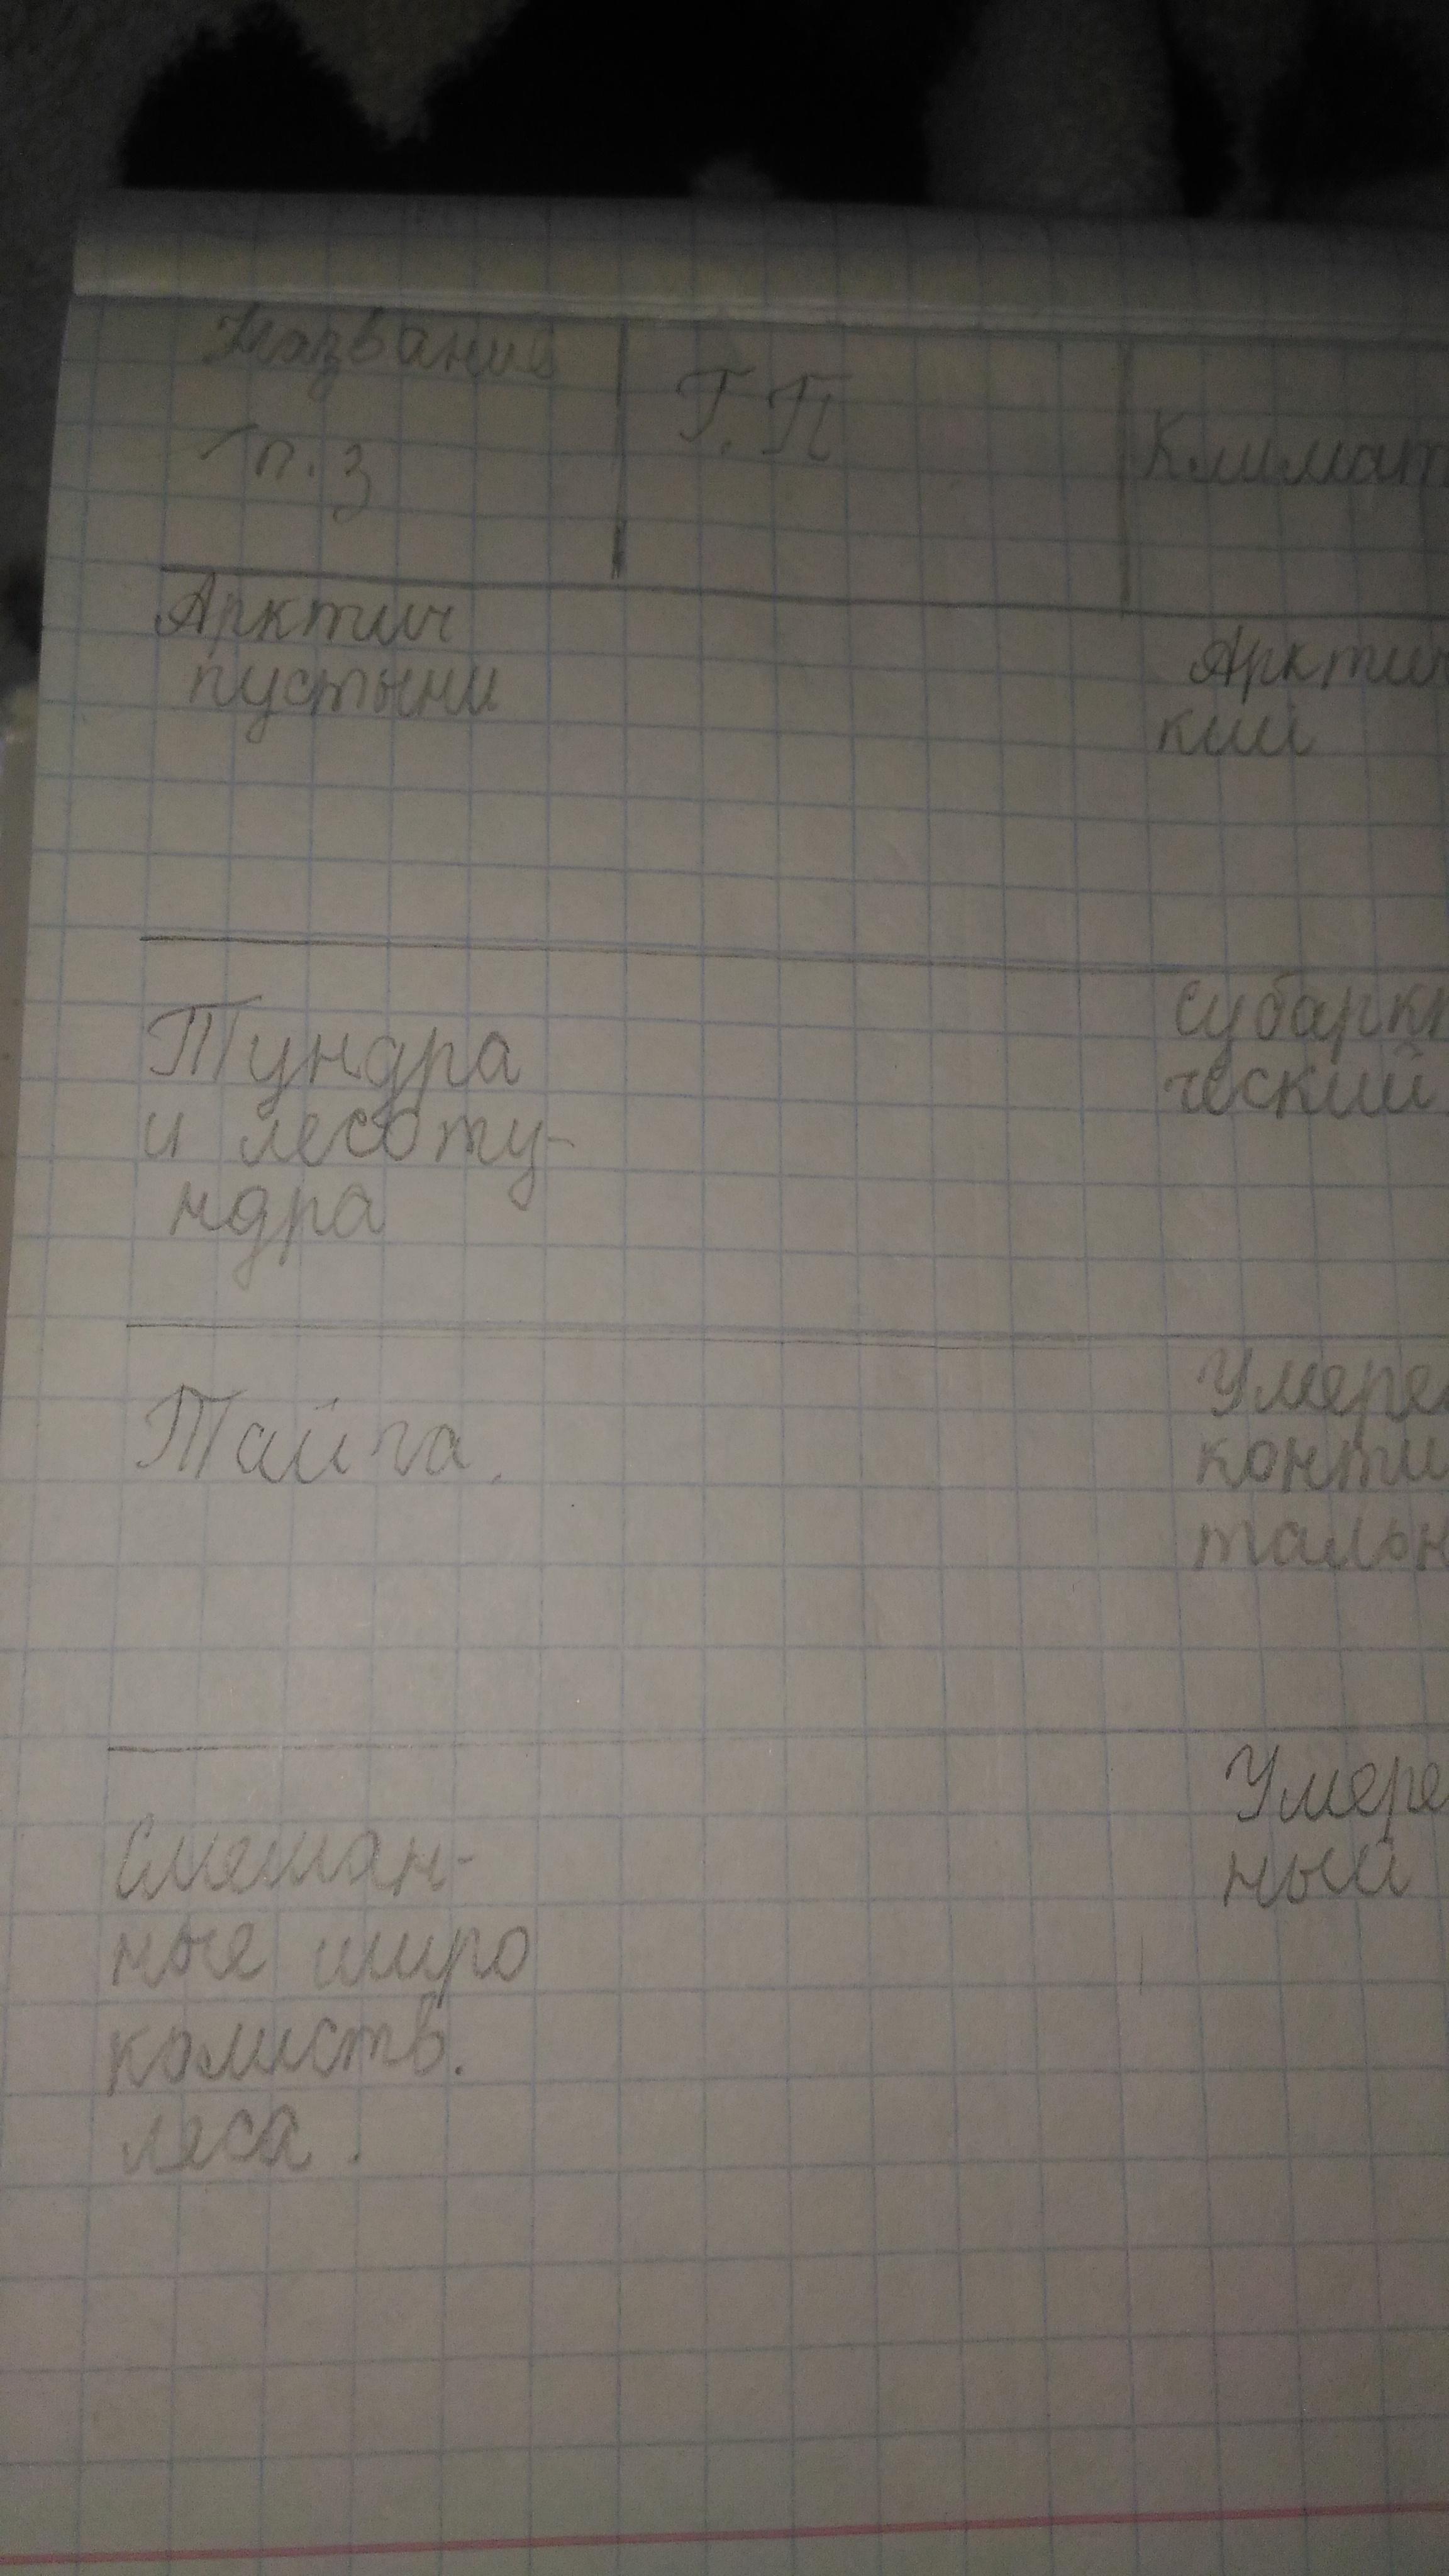 Название
п.з
Г.П
Климат
Арктич
пустыни
Арктич
кий
Тундра
и лесоту-
ндра
Субаркт
ческий
Тайга.
Умерен
конти
тальн
Смешан-
ные широ
колиств.
леса.
Умере
ный